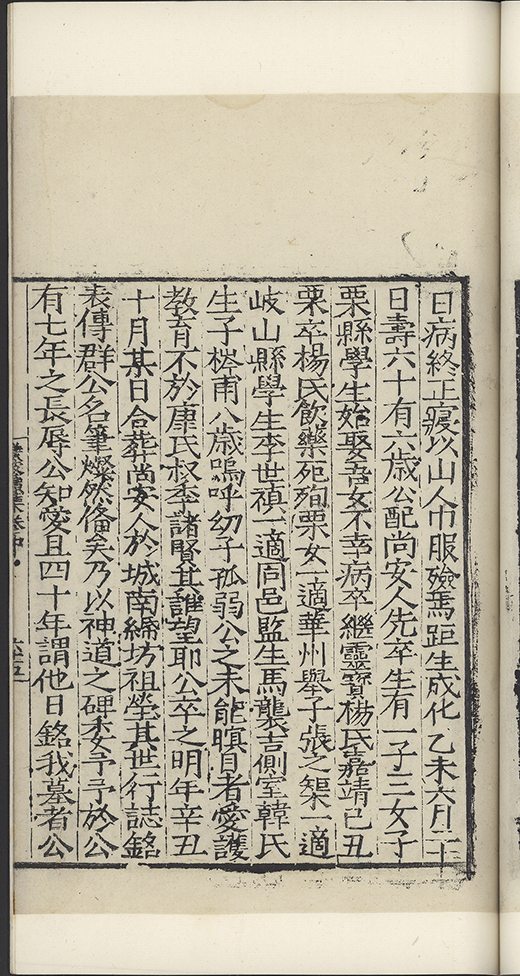 日病終正寢以山人巾服殮焉距生成化乙未六月二十
日壽六十有六歲公配尚安人先卒生有一子三女子
栗縣學生始娶吾女不幸病卒繼靈寶楊氏嘉靖己丑
栗卒楊氏飲藥死殉栗女一適華州舉子張之榘一適
岐山縣學生李世禎一適同邑監生馬襲吉側室韓氏
生子梣甫八歲嗚呼幼子孤弱公之未能瞑目者愛護
教育不於康氏叔季諸賢其誰望耶公卒之明年辛丑
十月某日合葬尚安人於城南綸坊祖塋其世行誌銘
表傳群公名筆燦然俻矣乃以神道之碑委予予於公
有七年之長辱公知愛且四十年謂他日銘我墓者公